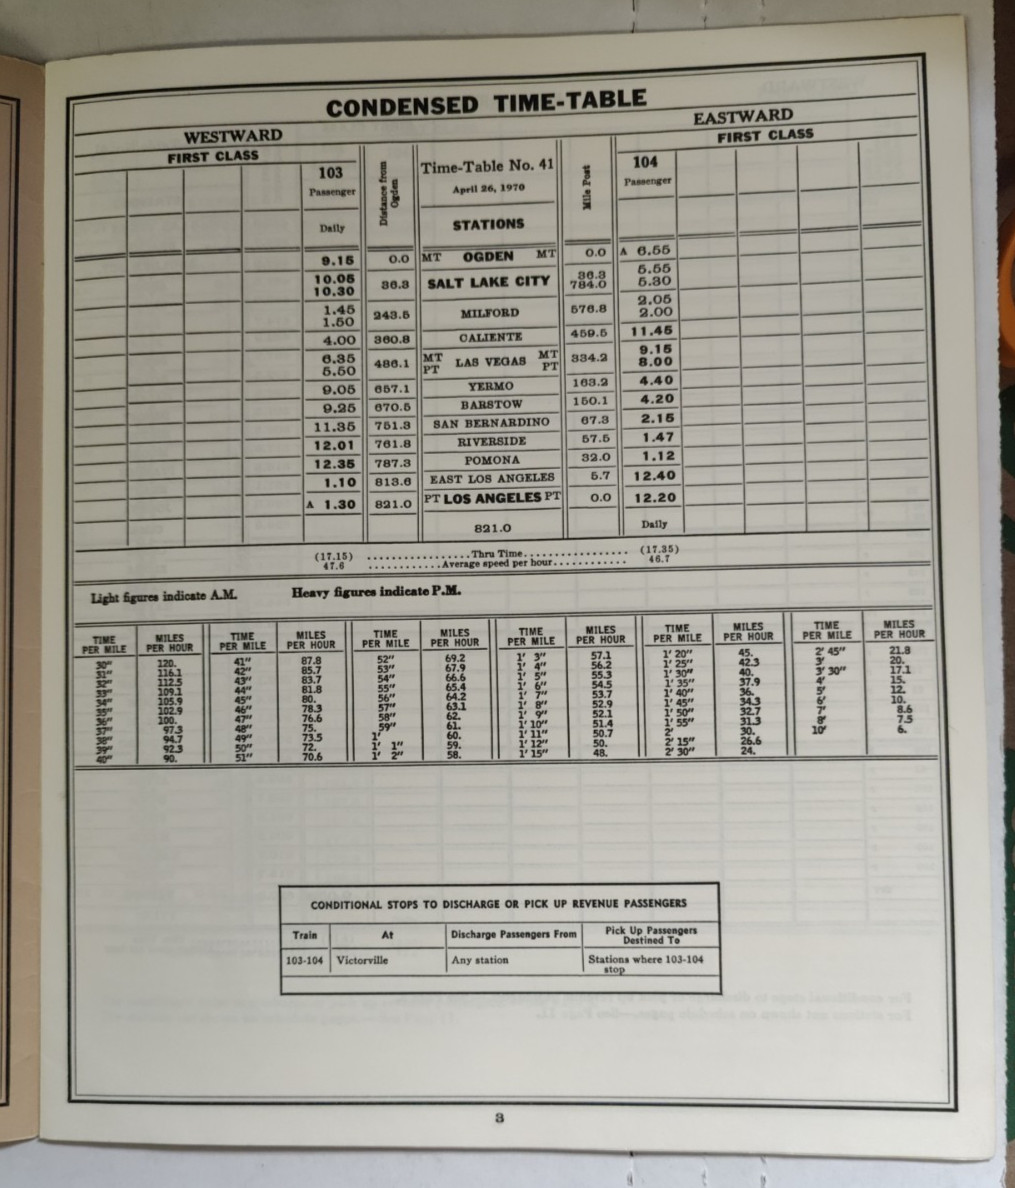 CONDENSED TIME-TABLE
WESTWARD EASTWARD
FIRST CLASS FIRST CLASS
103 Distance from Ogden Time-Table No. 41 Mile Post 104
Passenger April 26, 1970 Passenger
Daily STATIONS
9.15 0.0 MT OGDEN MT 0.0 A 6.55
10.05 10.30 36.3 SALT LAKE CITY 36.3 784.0 5.55 5.30
1.45 1.50 243.5 MILFORD 576.8 2.05 2.00
4.00 360.8 CALIENTE 459.5 11.45
6.35 5.50 486.1 MT PT LAS VEGAS MT PT 334.2 9.15 8.00
9.05 657.1 YERMO 163.2 4.40
9.25 670.5 BARSTOW 150.1 4.20
11.35 751.3 SAN BERNARDINO 67.3 2.15
12.01 761.8 RIVERSIDE 57.5 1.47
12.35 787.3 POMONA 32.0 1.12
1.10 813.6 EAST LOS ANGELES 5.7 12.40
A 1.30 821.0 PT LOS ANGELES PT 0.0 12.20
821.0 Daily
(17.15) ................Thru Time................ (17.35)
47.6 ............Average speed per hour............ 46.7
Light figures indicate A.M. Heavy figures indicate P.M.
TIME PER MILE MILES PER HOUR TIME PER MILE MILES PER HOUR TIME PER MILE MILES PER HOUR TIME PER MILE MILES PER HOUR TIME PER MILE MILES PER HOUR TIME PER MILE MILES PER HOUR
30" 120. 41" 87.8 52" 69.2 1' 3" 57.1 1' 20" 45. 2' 45" 21.8
31" 116.1 42" 85.7 53" 67.9 1' 4" 56.2 1' 25" 42.3 3' 20.
32" 112.5 43" 83.7 54" 66.6 1' 5" 55.3 1' 30" 40. 3' 30" 17.1
33" 109.1 44" 81.8 55" 65.4 1' 6" 54.5 1' 35" 37.9 4' 15.
34" 105.9 45" 80. 56" 64.2 1' 7" 53.7 1' 40" 36. 5' 12.
35" 102.9 46" 78.3 57" 63.1 1' 8" 52.9 1' 45" 34.3 6' 10.
36" 100. 47" 76.6 58" 62. 1' 9" 52.1 1' 50" 32.7 7' 8.6
37" 97.3 48" 75. 59" 61. 1' 10" 51.4 1' 55" 31.3 8' 7.5
38" 94.7 49" 73.5 1' 60. 1' 11" 50.7 2' 30. 10' 6.
39" 92.3 50" 72. 1' 1" 59. 1' 12" 50. 2' 15" 26.6
40" 90. 51" 70.6 1' 2" 58. 1' 15" 48. 2' 30" 24.
CONDITIONAL STOPS TO DISCHARGE OR PICK UP REVENUE PASSENGERS
Train At Discharge Passengers From Pick Up Passengers Destined To
103-104 Victorville Any station Stations where 103-104 stop
3